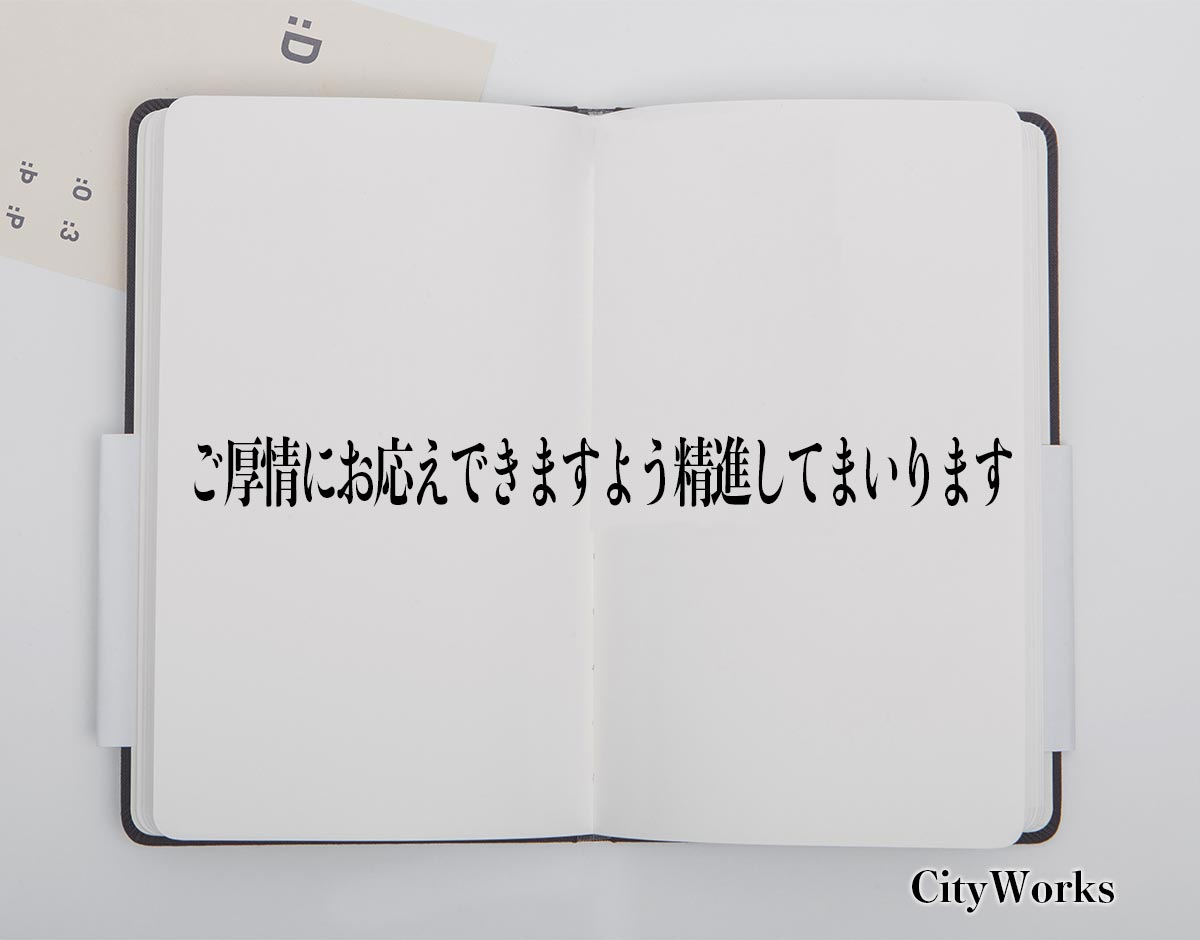 :D
:P
:O
:P
:3
ご厚情にお応えできますよう精進してまいります
CityWorks